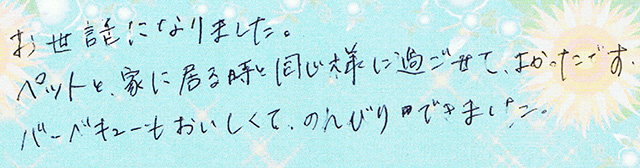 お世話になりました。
ペットと、家に居る時と同じ様に過ごせて、よかったです.
バーベキューもおいしくて、のんびりできました。